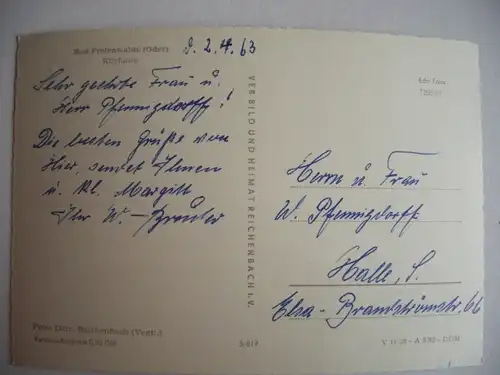 Bad Freienwalde (Oder)
Kurhaus
d. 2.4.63
Sehr geehrte Frau u.
Herr Pfennigdorff!
Die besten Grüße von
Hier, sendet Ihnen
u. Kl. Margitt
Ihr W.
VEB BILD UND HEIMAT REICHENBACH i. V.
Echt Foto
Herrn u. Frau
W. Pfennigdorff
Halle, S.
Elsa-Brandströmstr. 66
Foto: Reichenbach (Vogtl.)
V 11 28 - A - DDR